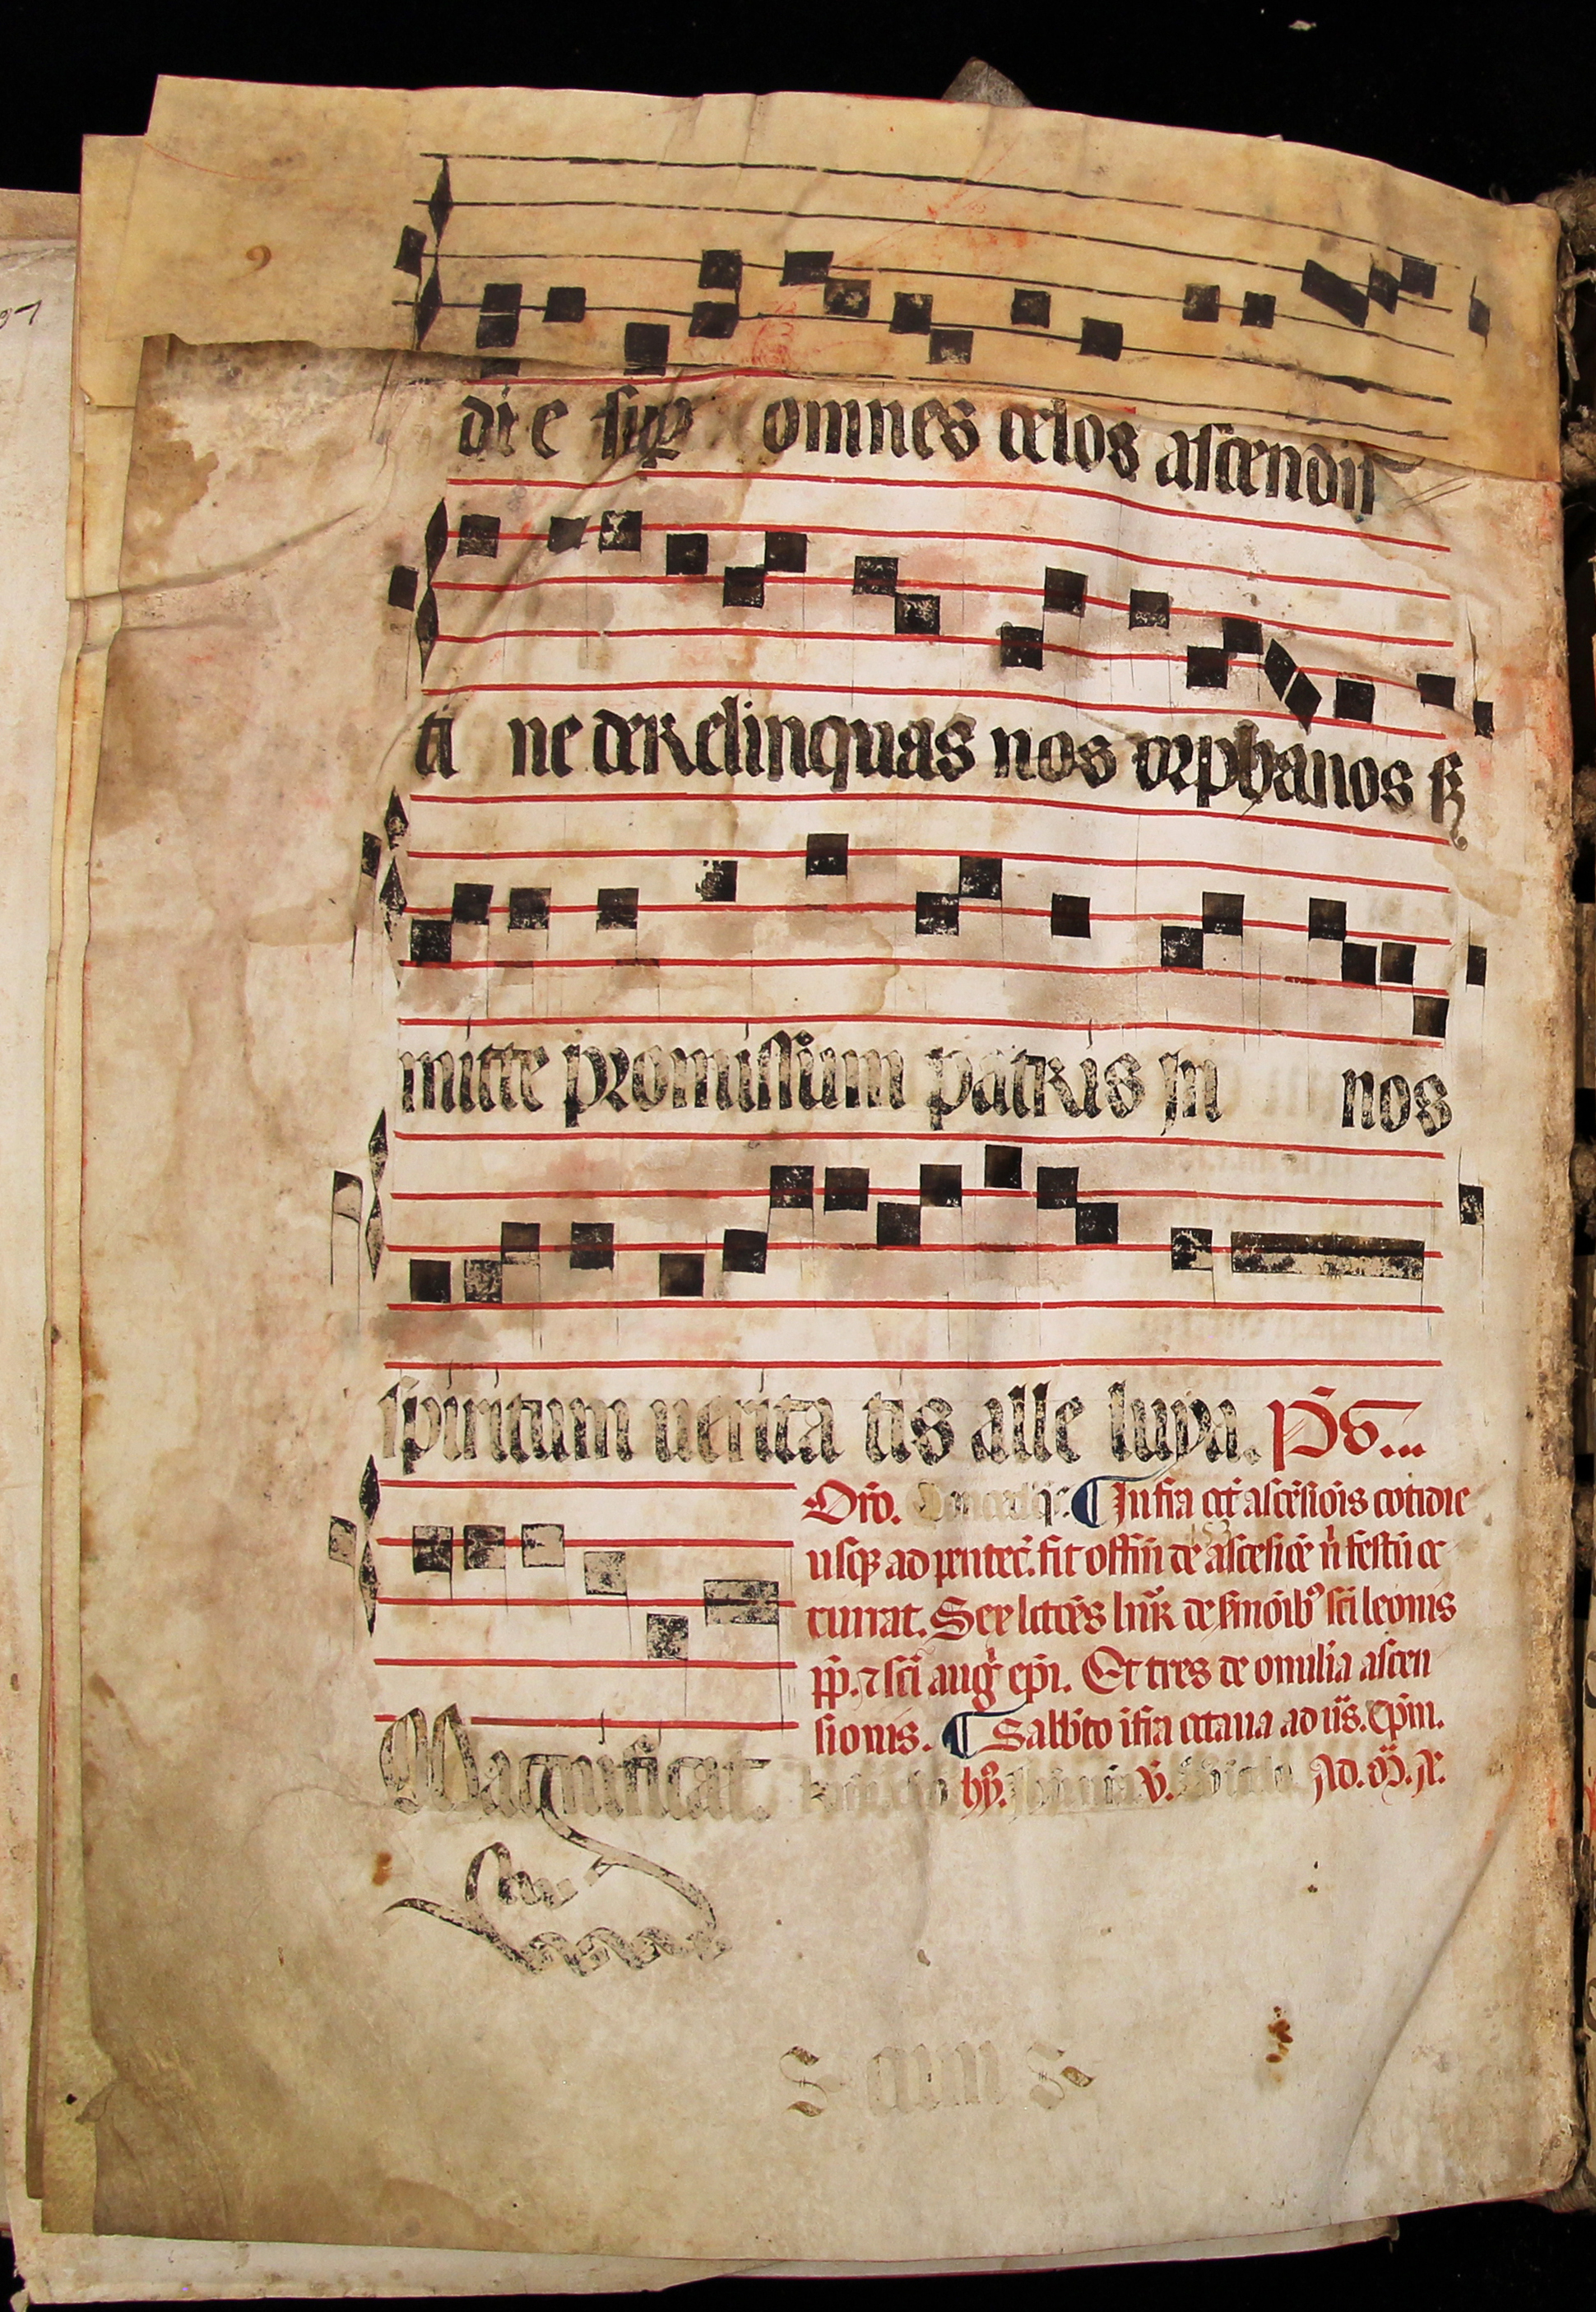 die sup omnes celos ascendis
ti ne derelinquas nos orphanos sꝫ
mitte promissum patris in nos
spiritum uerita tis alle luya. Ps...
Oro. Concede qs. ¶ Infra oct ascēsiōis cotidie
usqꝫ ad pentec̄. fit offm̄ de ascēsiōe n̄ festū oc
currat. Sex lectōēs leḡnr de s̄moibꝰ sc̄i leonis
pp̄. ⁊ sc̄i auḡ ep̄i. Et tres de omilia ascen
sionis. ¶ Sabbto ifra octaua ad ūs. Cp̄m.
hȳ. v̄. Ad. M̄. A.
Magnificat.